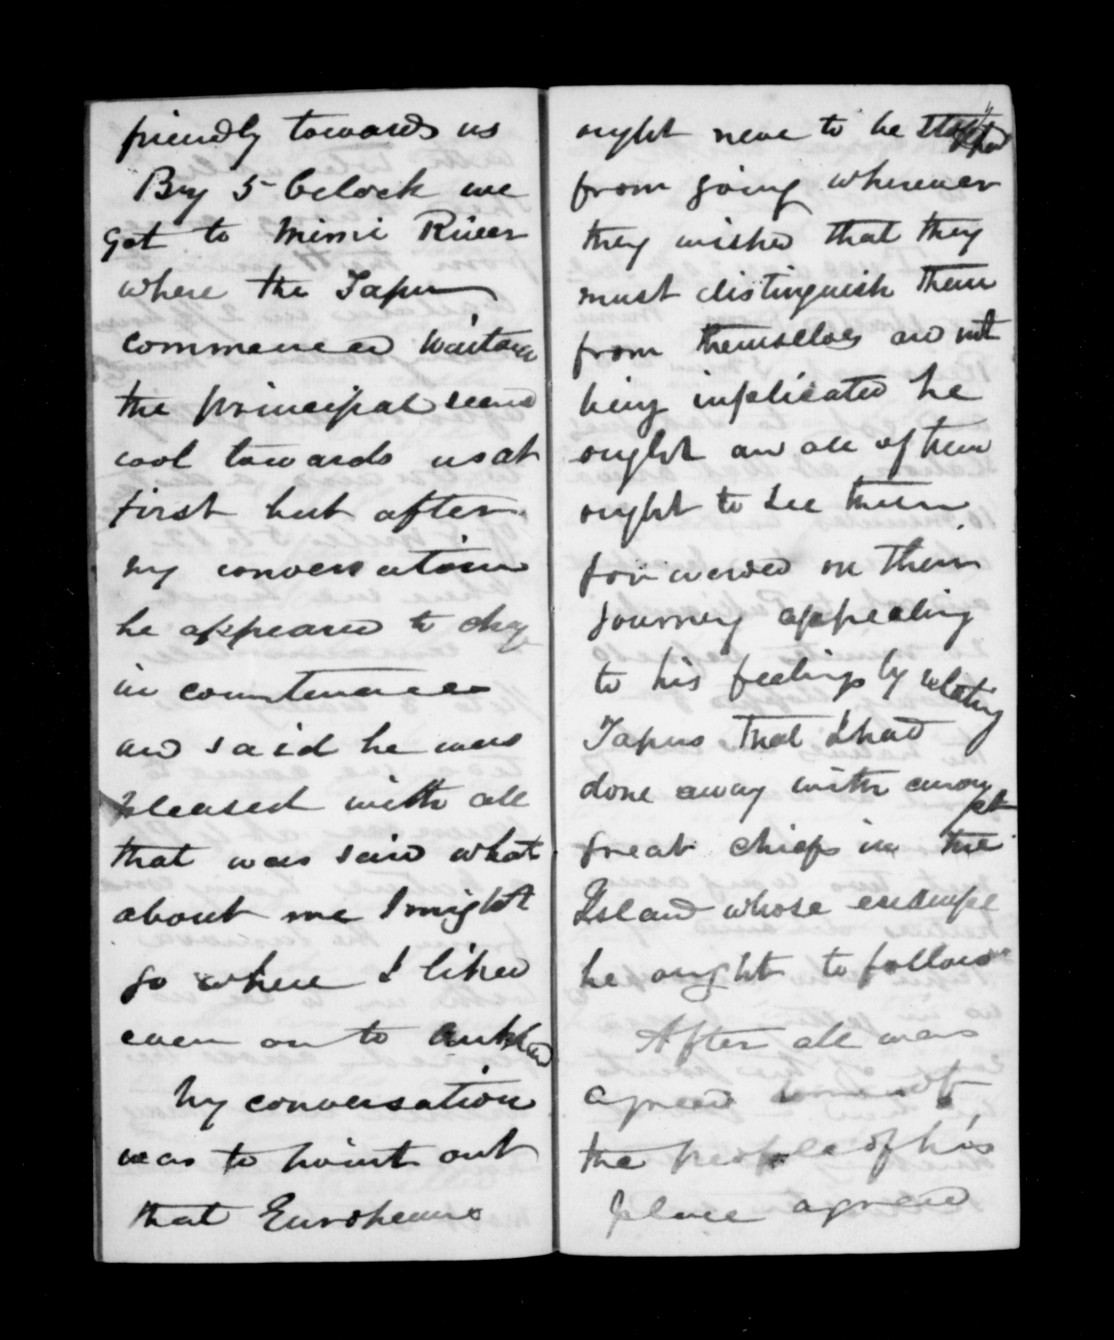 friendly towards us
By 5 Oclock we
got to Mimi River
where the Tapu
commenced Waitara
the principal seemed
cool towards us at
first but after
my conversation
he appeared to chg
in countenance
and said he was
pleased with all
that was said what
about me I might
go where I liked
even on to Aukland
My conversation
was to point out
that Europeans
ought never to be stopped
from going wherever
they wished that they
must distinguish them
from themselves and not
being implicated he
ought and all of them
ought to see them
forwarded on their
Journey appealing
to his feelings by relating
Tapus that I had
done away with among
great chiefs in the
Island whose example
he ought to follow
After all was
agreed
the people of his
place agreed